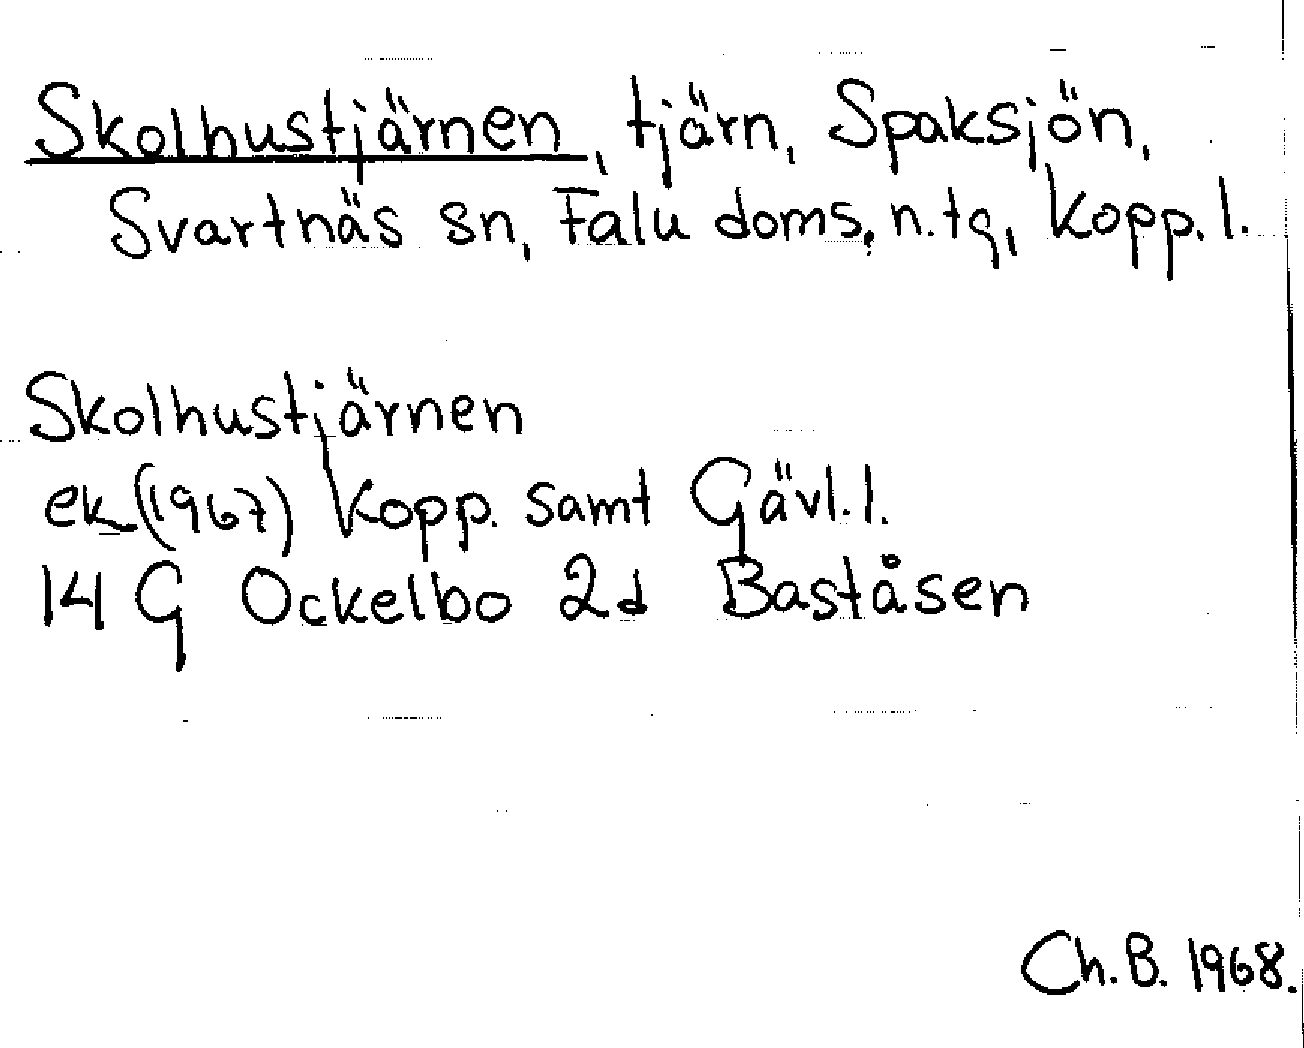 Skolhustjärnen, tjärn, Spaksjön,
Svartnäs sn, Falu doms, n.tg, Kopp. l.
Skolhustjärnen
ek (1967) Kopp. samt Gävl. l.
14 G Ockelbo 2d Baståsen
Ch. B. 1968.